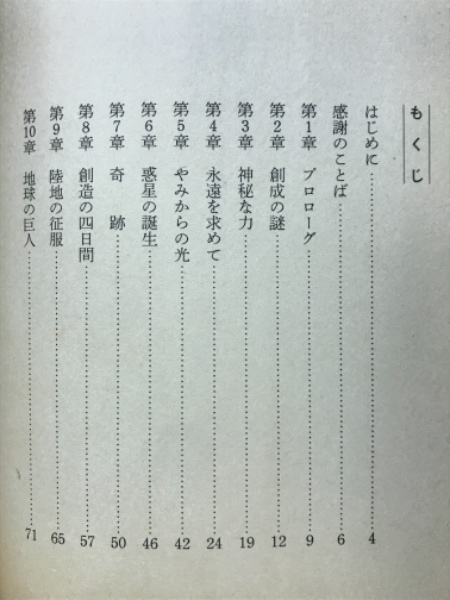 もくじ
はじめに……………………4
感謝のことば……………………6
第1章 プロローグ……………………9
第2章 創成の謎……………………12
第3章 神秘な力……………………19
第4章 永遠を求めて……………………24
第5章 やみからの光……………………42
第6章 惑星の誕生……………………46
第7章 奇 跡……………………50
第8章 創造の四日間……………………57
第9章 陸地の征服……………………65
第10章 地球の巨人……………………71